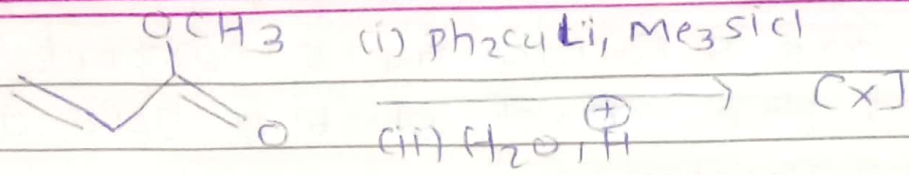 OCH3 (i) Ph2CuLi, Me3SiCl
[X]
O (ii) H2O, H⊕